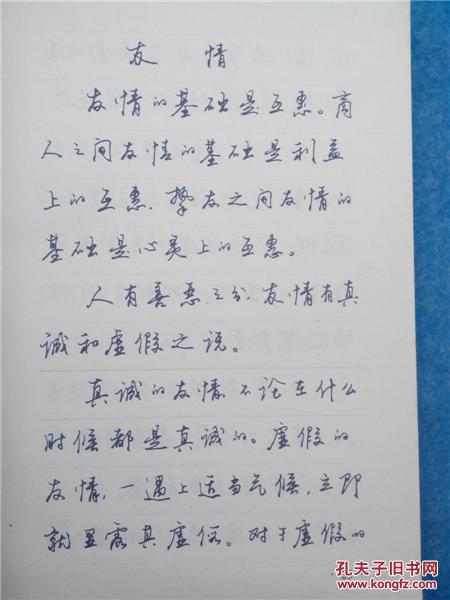 友 情
友情的基础是互惠。商
人之间友情的基础是利益
上的互惠,挚友之间友情的
基础是心灵上的互惠。
人有善恶之分,友情有真
诚和虚假之说。
真诚的友情,不论在什么
时候都是真诚的。虚假的
友情,一遇上适当气候,立即
就显露其虚假。对于虚假的
孔夫子旧书网
KONGFZ.COM